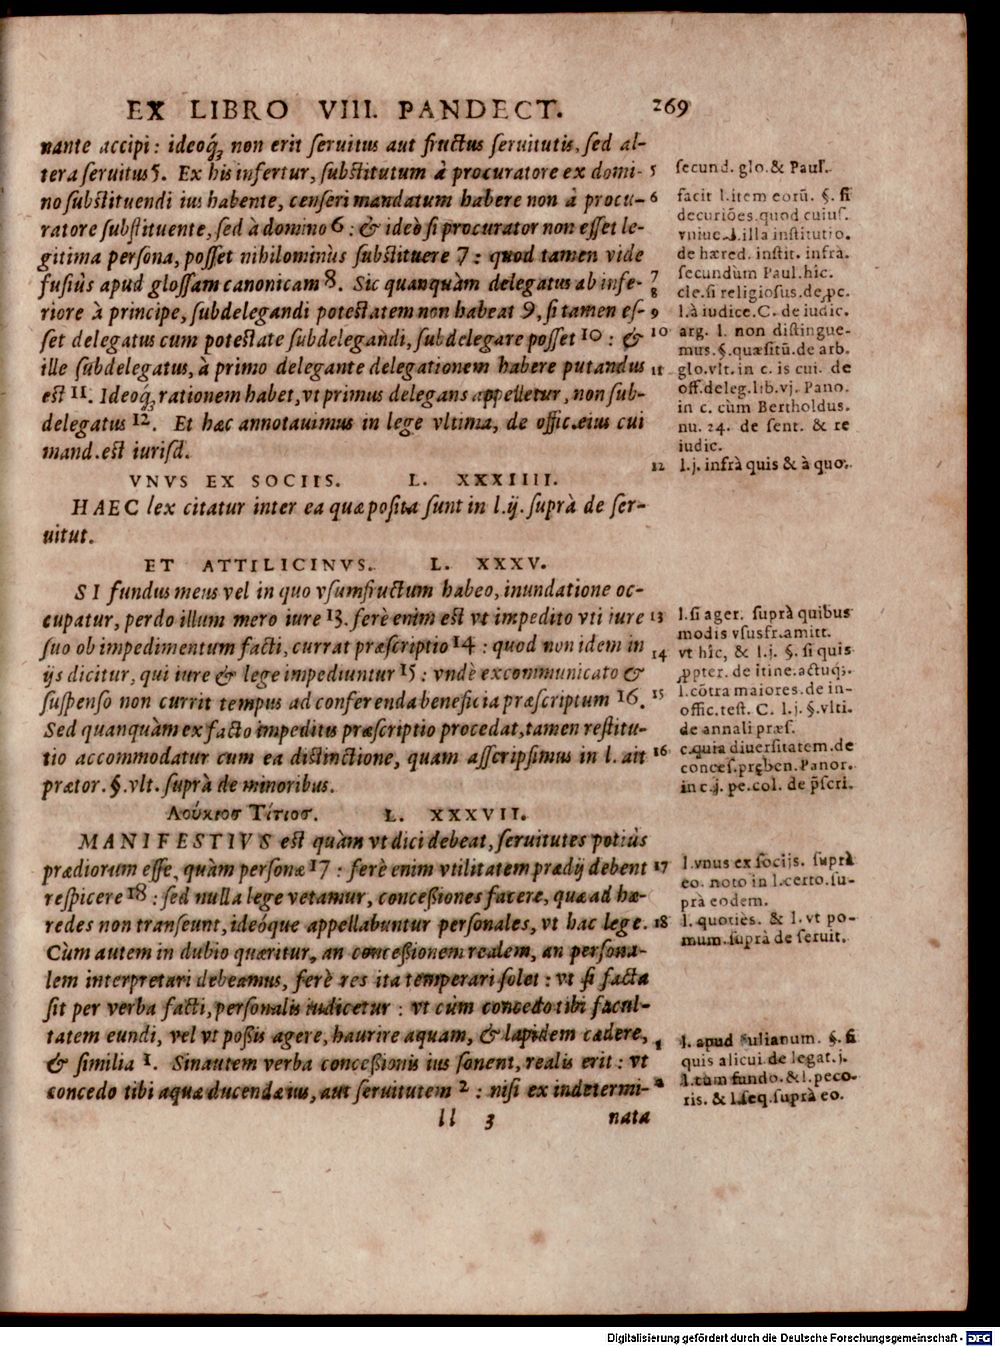 EX LIBRO VIII. PANDECT. 269
nante accipi: ideoq́; non erit ſeruitus aut fructus ſeruitutis, ſed al-
tera ſeruitus 5. Ex his infertur, ſubſtitutum à procuratore ex domi-
no ſubſtituendi ius habente, cenſeri mandatum habere non à procu-
ratore ſubſtituente, ſed à domino 6: & ideò ſi procurator non eſſet le-
gitima perſona, poſſet nihilominùs ſubſtituere 7: quod tamen vide
fuſiùs apud gloſſam canonicam 8. Sic quanquàm delegatus ab infe-
riore à principe, ſubdelegandi poteſtatem non habeat 9, ſi tamen eſ-
ſet delegatus cum poteſtate ſubdelegandi, ſubdelegare poſſet 10: &
ille ſubdelegatus, à primo delegante delegationem habere putandus
eſt 11. Ideoq́; rationem habet, vt primus delegans appelletur, non ſub-
delegatus 12. Et hæc annotauimus in lege vltima, de offic. eius cui
mand. eſt iuriſd.
VNVS EX SOCIIS. L. XXXIIII.
HAEC lex citatur inter ea quæ poſita ſunt in l. ij. ſuprà de ſer-
uitut.
ET ATTILICINVS. L. XXXV.
SI fundus meus vel in quo vſumfructum habeo, inundatione oc-
cupatur, perdo illum mero iure 13. ferè enim eſt vt impedito vti iure
ſuo ob impedimentum facti, currat præſcriptio 14: quod non idem in
ijs dicitur, qui iure & lege impediuntur 15: vndè excommunicato &
ſuſpenſo non currit tempus ad conferenda beneficia præſcriptum 16.
Sed quanquàm ex facto impeditis præſcriptio procedat, tamen reſtitu-
tio accommodatur cum ea diſtinctione, quam aſſcripſimus in l. ait
prætor. §. vlt. ſuprà de minoribus.
Λούκιοσ Τίτιοσ. L. XXXVII.
MANIFESTIVS eſt quàm vt dici debeat, ſeruitutes potiùs
prædiorum eſſe, quàm perſonæ 17: ferè enim vtilitatem prædij debent
reſpicere 18: ſed nulla lege vetamur, conceßiones facere, quæ ad hæ-
redes non tranſeunt, ideóque appellabuntur perſonales, vt hac lege.
Cùm autem in dubio quæritur, an conceßionem realem, an perſona-
lem interpretari debeamus, ferè res ita temperari ſolet: vt ſi facta
ſit per verba facti, perſonalis iudicetur: vt cùm concedo tibi facul-
tatem eundi, vel vt poßis agere, haurire aquam, & lapidem cædere,
& ſimilia 1. Sin autem verba conceßionis ius ſonent, realis erit: vt
concedo tibi aquæ ducendæ ius, aut ſeruitutem 2: niſi ex indetermi-
ll 3 nata
5 ſecund. glo. & Pauſ.
6 facit l. item eorũ. §. ſi
decuriões. quod cuiuſ.
vniue. l. illa inſtitutio.
de hæred. inſtit. infrà.
7 ſecundùm Paul. hîc.
8 cle. ſi religioſus. de ꝓc.
9 l. à iudice. C. de iudic.
10 arg. l. non diſtingue-
mus. §. quæſitũ. de arb.
11 glo. vlt. in c. is cui. de
off. deleg. lib. vj. Pano.
in c. cùm Bertholdus.
nu. 24. de ſent. & re
iudic.
12 l. j. infrà quis & à quo.
13 l. ſi ager. ſuprà quibus
modis vſusfr. amitt.
14 vt hîc, & l. j. §. ſi quis
ꝓpter. de itine. actuq́;.
15 l. cõtra maiores. de in-
offic. teſt. C. l. j. §. vlti.
de annali præſ.
16 c. quia diuerſitatem. de
conceſ. pręben. Panor.
in c. j. pe. col. de p̃ſcri.
17 l. vnus ex ſocijs. ſuprà
eo. noto in l. certo. ſu-
prà eodem.
18 l. quoties. & l. vt po-
mum. ſuprà de ſeruit.
1 l. apud Iulianum. §. ſi
quis alicui. de legat. j.
2 l. cùm fundo. & l. peco-
ris. & l. ſeq. ſuprà eo.
Digitalisierung gefördert durch die Deutsche Forschungsgemeinschaft - DFG